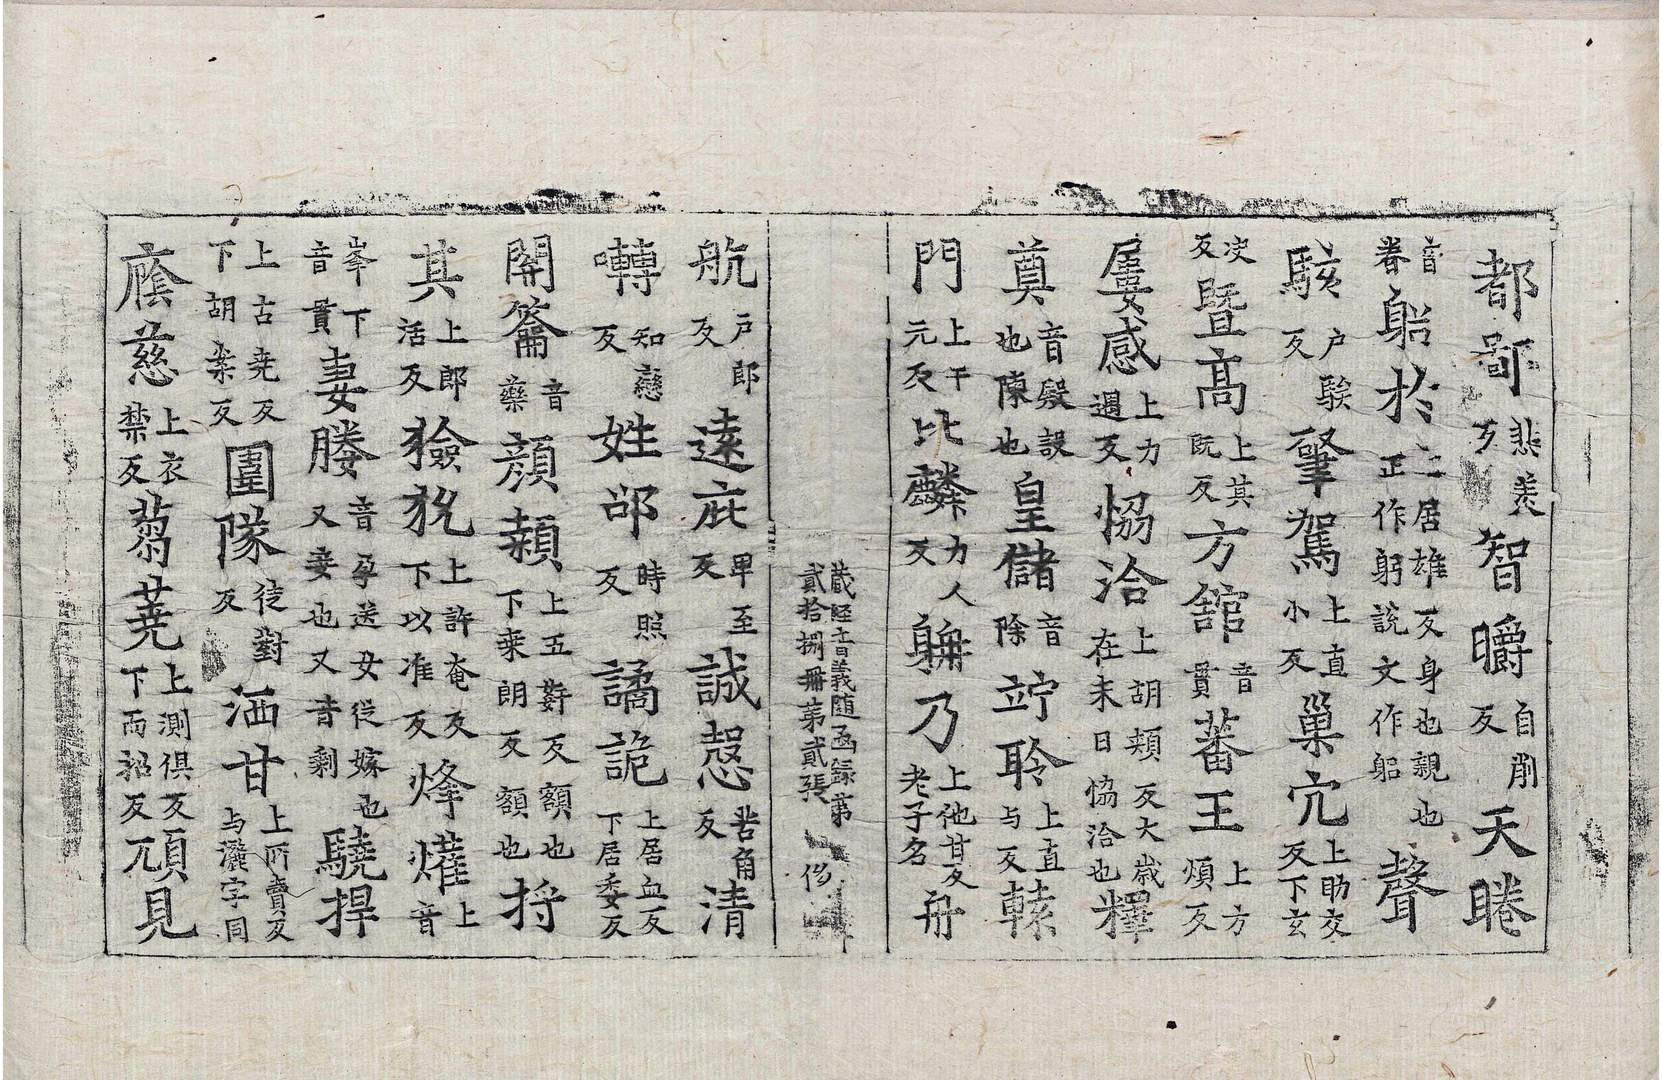 都鄙悲羙反智皭自削反天睠
音眷躳於上居雄反身也親也正作躬說文作躳聲
駭户騃反肈駕上直小反巢穴上助交反下玄
決反暨髙上其既反方舘音貫蕃王上方煩反
屢感上力遇反恊洽上胡頰反大歲在未日恊洽也釋
奠音殿設也陳也皇儲音除竚聆上直与反轅
門上于元反比麟力人反聃乃上他甘反老子名舟
藏経音義随函録第貳拾捌冊第貳張
航户郎反遠庇卑至反誠慤苦角反清
囀知戀反姓邵時照反譎詭上居血反下居委反
開籥音藥顔顙上五姧反額也下桒朗反額也捋
其上郎活反獫狁上許奄反下以准反烽爟上音
峯下音貫妻媵音孕送女從嫁也又妾也又音剩驍捍
上古尭反下胡案反圍隊徒對反洒甘上所賣反与灑字同
廕慈上衣禁反蒭蕘上測俱反下而招反頑見